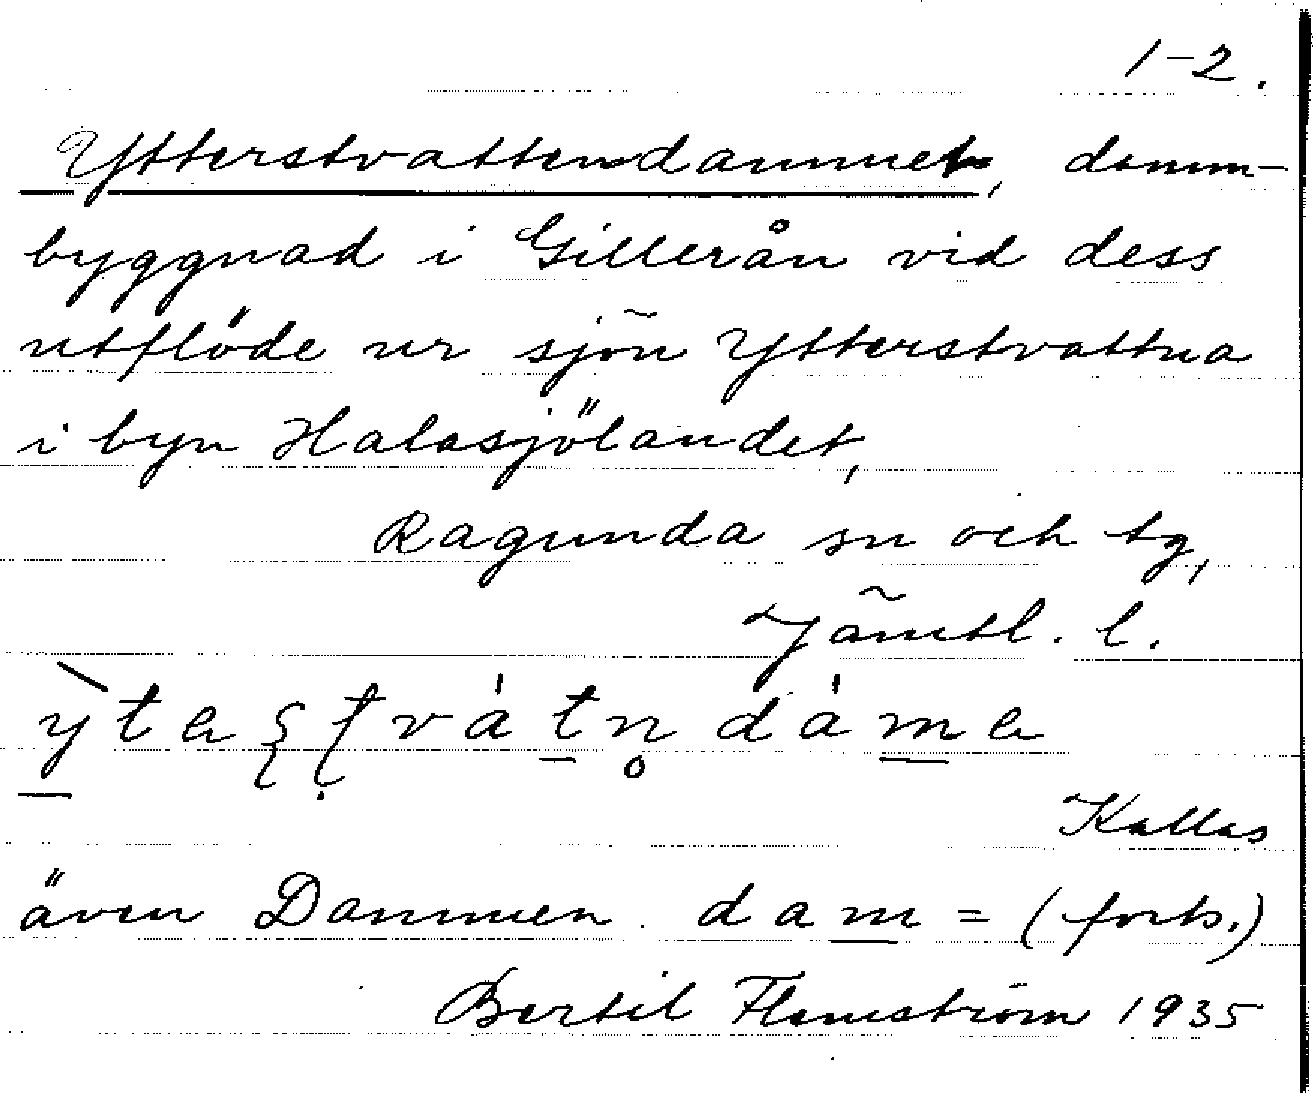 1-2.
Ytterstvattendammet, damm-
byggnad i Gillerån vid dess
utflöde ur sjön Ytterstvattna
i byn Halasjölandet,
Ragunda sn och tg,
Jämtl. l.
Kallas
även Dammen. dam = (forts.)
Bertil Flemström 1935